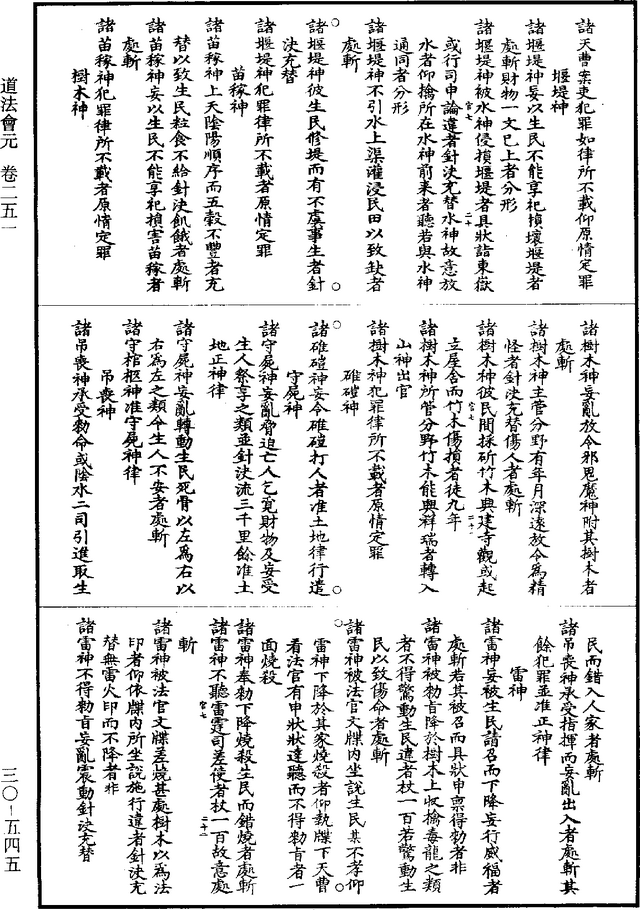 諸天曹案吏犯罪如律所不載仰原情定罪
堰堤神
諸堰堤神妄以生民不能享祀損壞堰堤者
處斬財物一文已上者分形
諸堰堤神被水神侵損堰堤者具狀詣東嶽
或行司申論違者針決充替水神故意放
水者仰擒所在水神前來者聽若與水神
通同者分形
諸堰堤神不引水上渠灌浸民田以致缺者
處斬
諸堰堤神彼生民修堤而有不虞事生者針
決充替
諸堰堤神犯罪律所不載者原情定罪
苗稼神
諸苗稼神上天陰陽順序而五穀不豐者充
替以致生民粒食不給針決飢餓者處斬
諸苗稼神妄以生民不能享祀損害苗稼者
處斬
諸苗稼神犯罪律所不載者原情定罪
樹木神
諸樹木神妄亂放令邪鬼魔神附其樹木者
處斬
諸樹木神主管分野有年月深遠放令為精
怪者針決充替傷人者處斬
諸樹木神彼民間採斫竹木興建寺觀或起
立屋舍而竹木傷損者徒九年
諸樹木神所管分野竹木能興祥瑞者轉入
山神出官
諸樹木神犯罪律所不載者原情定罪
碓磑神
諸碓磑神妄令碓磑打人者准土地律行遣
守屍神
諸守屍神妄亂脅迫亡人乞覓財物及妄受
生人祭享之類並針決流三千里餘准土
地正神律
諸守屍神妄亂轉動生民死骨以左為右以
右為左之類令生人不安者處斬
諸守棺柩神准守屍神律
吊喪神
諸吊喪神承受勑命或陰水二司引進取生
民而錯入人家者處斬
諸吊喪神承受指揮而妄亂出入者處斬其
餘犯罪並准正神律
雷神
諸雷神妄被生民請召而下降妄行威福者
處斬若其被召而具狀申禀得勑者非
諸雷神被勑旨降於樹木上收擒毒龍之類
者不得驚動生民違者杖一百若驚動生
民以致傷命者處斬
諸雷神被法官文牒內坐說生民某不孝仰
雷神下降於其家燒殺者仰執牒下天曹
看法官有申狀狀達聽而不得勑旨者一
面燒殺
諸雷神奉勑下降燒殺生民而錯燒者處斬
諸雷神不聽雷霆司差使者杖一百故意處
斬
諸雷神被法官文牒差燒甚處樹木以為法
印者仰依牒內所坐說施行違者針決充
替無雷火印而不降者非
諸雷神不得勑旨妄亂震動針決充替
道法會元 卷二五一
三〇-五四五